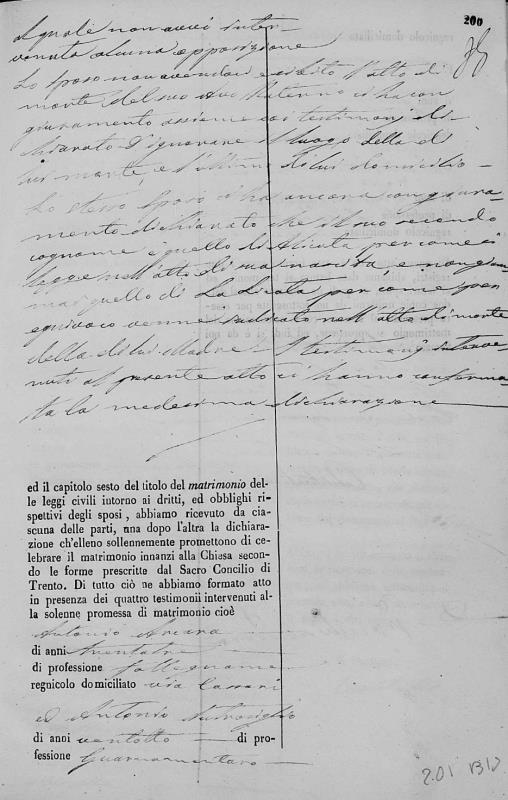 200
al quale non avvi inter
venuta alcuna opposizione
Lo sposo non avendo esibito l'atto di
morte del suo Avo Paterno ci ha con
giuramento assieme coi testimoni di
chiarato d'ignorare il luogo della di
lui morte, e l'ultimo di lui domicilio
Lo stesso sposo ci ha ancora con giura
mento dichiarato che il suo
cognome è quello di Licata per come si
legge nell'atto di sua nascita, e non giam
mai quello di La Licata per come per
equivoco venne indicato nell'atto di morte
della di lui Madre. I testimoni interve
nuti al presente atto ci hanno conferma
ta la medesima dichiarazione
ed il capitolo sesto del titolo del matrimonio del-
le leggi civili intorno ai dritti, ed obblighi ri-
spettivi degli sposi, abbiamo ricevuto da cia-
scuna delle parti, una dopo l'altra la dichiara-
zione ch'elleno sollennemente promettono di ce-
lebrare il matrimonio innanzi alla Chiesa secon-
do le forme prescritte dal Sacro Concilio di
Trento. Di tutto ciò ne abbiamo formato atto
in presenza dei quattro testimonii intervenuti al-
la solenne promessa di matrimonio cioè
Antonio Arcara
di anni Trentatre
di professione Fallegname
regnicolo domiciliato via
ed Antonio
di anni ventotto di pro-
fessione Guarnamentaro
201 1310